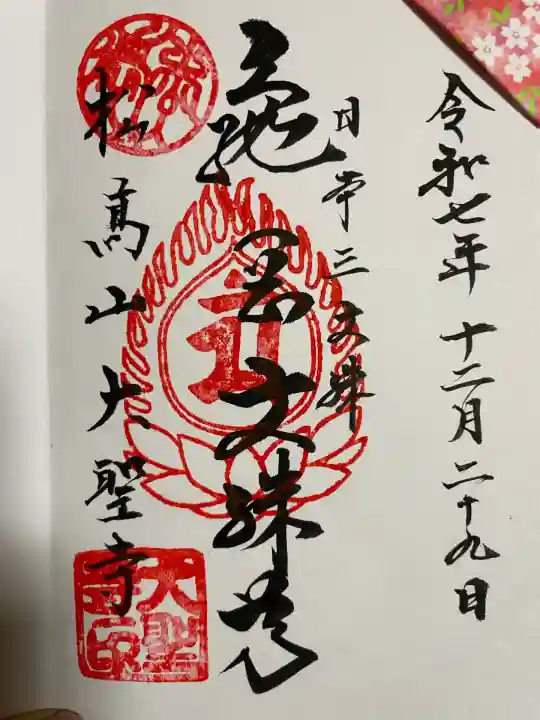 令和七年 十二月二十九日
日本三文殊
亀岡文殊尊
松高山大聖寺
大聖寺印